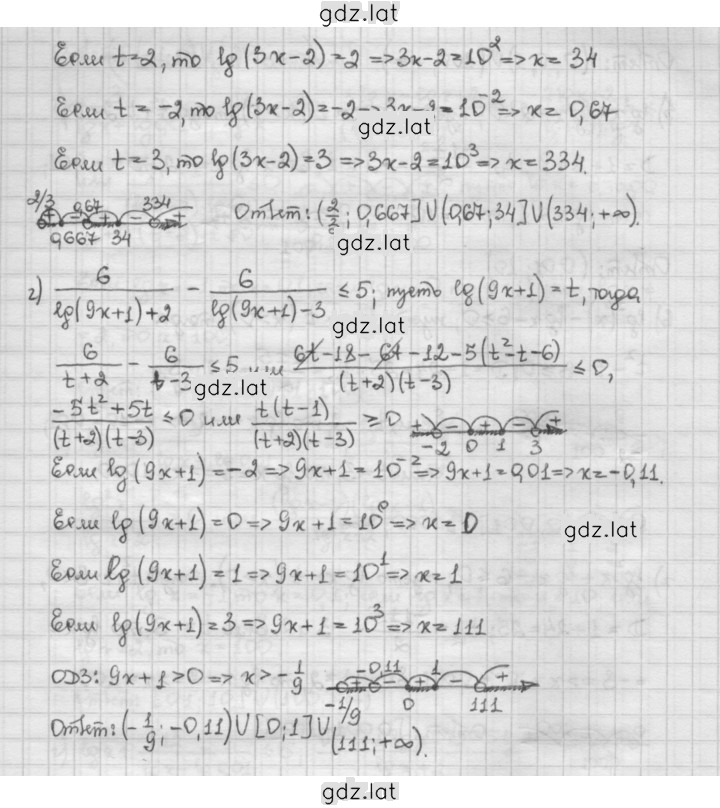 gdz.lat
Если t=2, то lg(3x-2)=2 => 3x-2=10² => x=34
Если t=-2, то lg(3x-2)=-2 = 10⁻² => x=0,67
gdz.lat
Если t=3, то lg(3x-2)=3 => 3x-2=10³ => x=334.
2/3 0,67 334
+ - + - +
0,667 34
Ответ: (2/3; 0,667] ∪ (0,67; 34] ∪ (334; +∞).
gdz.lat
г) 6/(lg(9x+1)+2) - 6/(lg(9x+1)-3) ≤ 5; пусть lg(9x+1)=t, тогда
gdz.lat
6/(t+2) - 6/(t-3) ≤ 5 или (6t-18-6t-12-5(t²-t-6))/((t+2)(t-3)) ≤ 0,
gdz.lat
(-5t²+5t)/((t+2)(t-3)) ≤ 0 или t(t-1)/((t+2)(t-3)) ≥ 0
+ - + - +
-2 0 1 3
Если lg(9x+1)=-2 => 9x+1=10⁻² => 9x+1=0,01 => x=-0,11.
Если lg(9x+1)=0 => 9x+1=10⁰ => x=0
gdz.lat
Если lg(9x+1)=1 => 9x+1=10¹ => x=1
Если lg(9x+1)=3 => 9x+1=10³ => x=111
ОДЗ: 9x+1>0 => x>-1/9
-0,11 1
+ - + - +
-1/9 0 111
Ответ: (-1/9; -0,11) ∪ [0; 1] ∪
(111; +∞).
gdz.lat